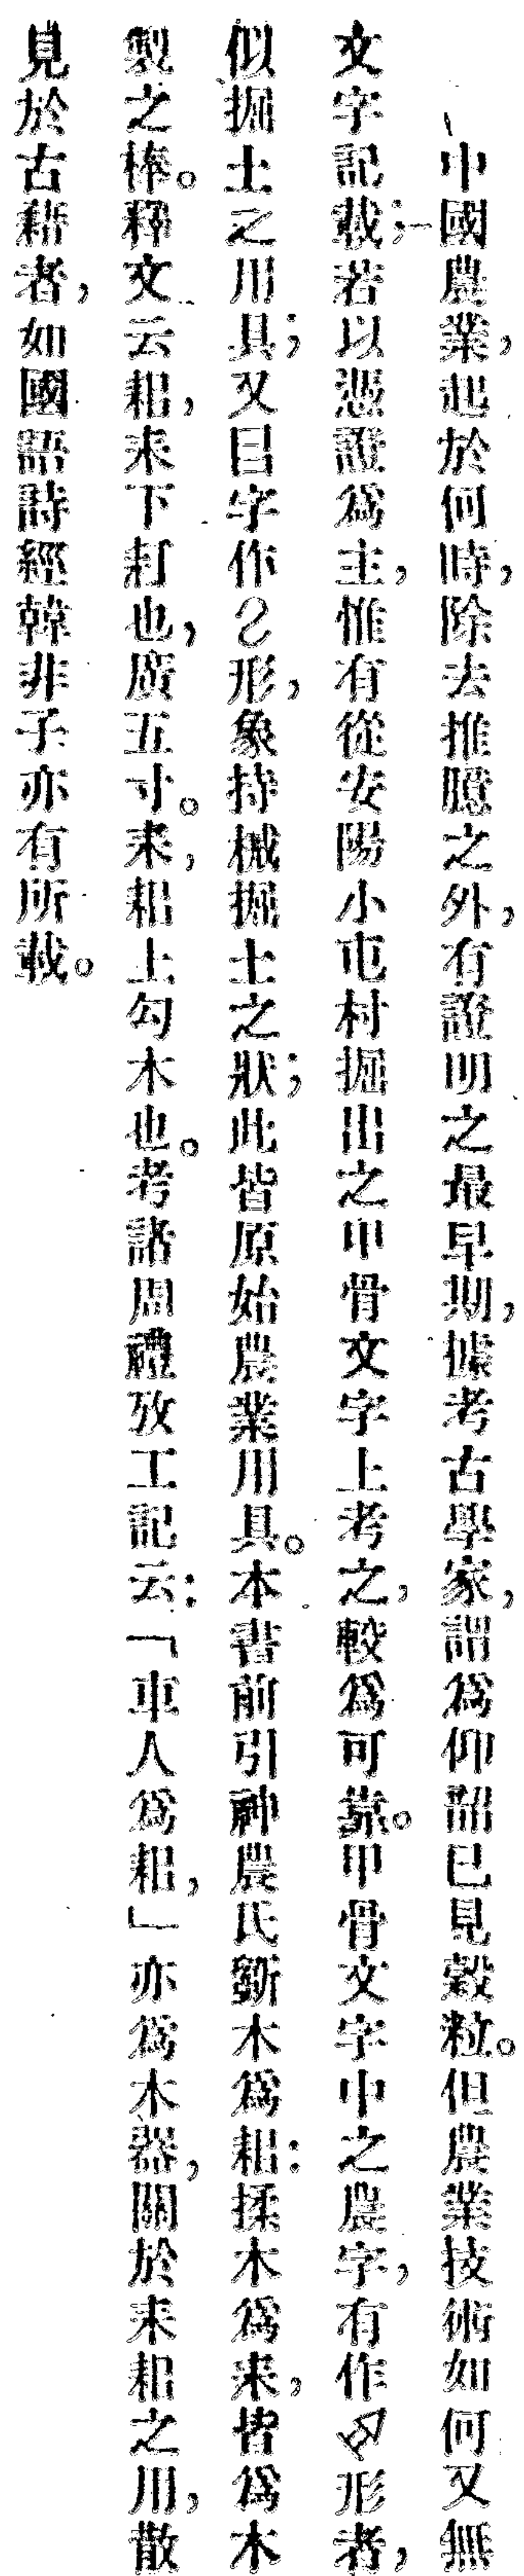 中國農業，起於何時，除去推臆之外，有證明之最早期，據考古學家，謂爲仰韶已見穀粒。但農業技術如何又無
文字記載；若以憑證爲主，惟有從安陽小屯村掘出之甲骨文字上考之，較爲可靠。甲骨文字中之農字，有作形者，
似掘土之用具；又㠯字作形，象持械掘土之狀；此皆原始農業用具。本書前引神農氏斵木爲耜：揉木爲耒，皆爲木
製之棒。釋文云耜，耒下耓也，廣五寸。耒，耜上勾木也。考諸周禮攷工記云：「車人爲耜，」亦爲木器，關於耒耜之用，散
見於古籍者，如國語詩經韓非子亦有所載。